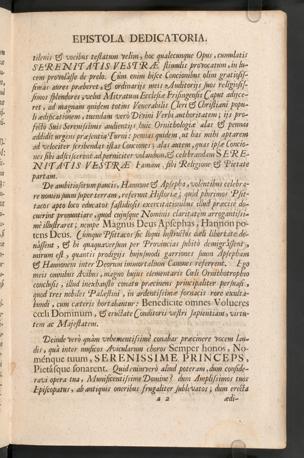 EPISTOLA DEDICATORIA.
tilenis & vocibus testatum velim, hoc qualecunque Opus, cumulatis
SERENITATIS VESTRÆ stimulis provocatum, in lu-
cem provolasse de prelo. Cùm enim hisce Concionibus olim gratiosissi-
mas aures præberet, & ordinariis meis Auditoriis suo religiosissi-
mos splendore veluti Mitratum Ecclesiæ Frisingensis Caput adjice-
ret, ad magnum quidem totius Venerabilis Cleri & Christiani popu-
li ædificationem, tuendum verò Divini Verbi authoritatem; tu pro-
fectò Suis Serenissimus audientijs, huic Ornithologiæ alas & pennas
addidit argutis præsentia Furvis: pennas quidem, ut has mihi aptarem
ad velociter scribendas istas Conciones; alas autem, quas ipsæ Concio-
nes sibi adsciscerent ad perniciter volandum, & celebrandam SERE-
NITATIS VESTRÆ Famam, sibi Religione & Pietate
partam.
De ambitiosarum paucis, Hannone & Apsepha, volentibus celebra-
re nomini suum super terram, refertur Historiæ; quòd plurimos Psit-
tacos apto loco educatos fastidiosis exercitationibus illud præcisè do-
cuerint pronuntiare, quod cujusque Nominis claritatem arrogantissi-
mè illustraret; nempe Magnus Deus Apsephas, Hannon po-
tens Deus. Cùmque Psittacos sic sliquis instructos cœli libertate do-
nâssent, & hi quaquaversum per Provincias subitò demigrâssent,
mirum est, quantis prodigijs hujusmodi garrientes suum Apsepham
& Hannonem inter Deorum immortalium Canones referrent. Ego
meis omnibus Avibus, magno hujus elementaris Cœli Ornithotrophio
conclusis, illud inexhausto conatu præcinens principaliter persuasi,
quod tres nobiles Palæstini, in ardentissimæ fornacis rore exulta-
bundi, cum cæteris hortabantur: Benedicite omnes Volucres
cœli Dominum, & eructate Conditoris vestri sapientiam, virtu-
tem ac Majestatem.
Deinde verò quàm vehementissimè conabar præcinere vocem lau-
dis, quâ inter musicos Avicularum choros Semper honos, No-
ménque tuum, SERENISSIME PRINCEPS,
Pietásque sonarent. Quid enim verò aliud poteram, dum conside-
rava opera tua, Munificentissime Domine? dum Amplissimos tuos
Episcopatus, ab antiquis oneribus frugaliter sublevatos; dum erecta
a 2
ædi-